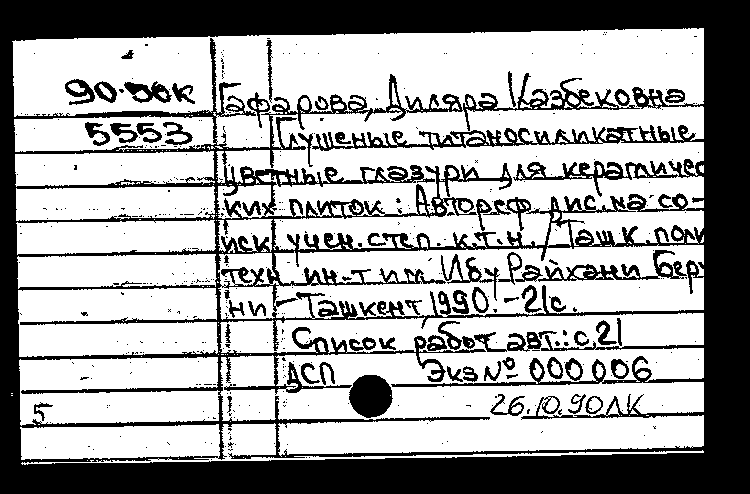 90-50к
5553
Гафарова, Диляра Казбековна
Глушеные титаносиликатные
цветные глазури для керамичес
ких плиток : Автореф. дис. на со-
иск. учен. степ. к.т.н. / Ташк. поли
техн. ин-т им. Ибу Райхани Беру
ни - Ташкент, 1990. - 21с.
Список работ авт.: с.21
ДСП Экз № 000 006
26.10.90ЛК
5